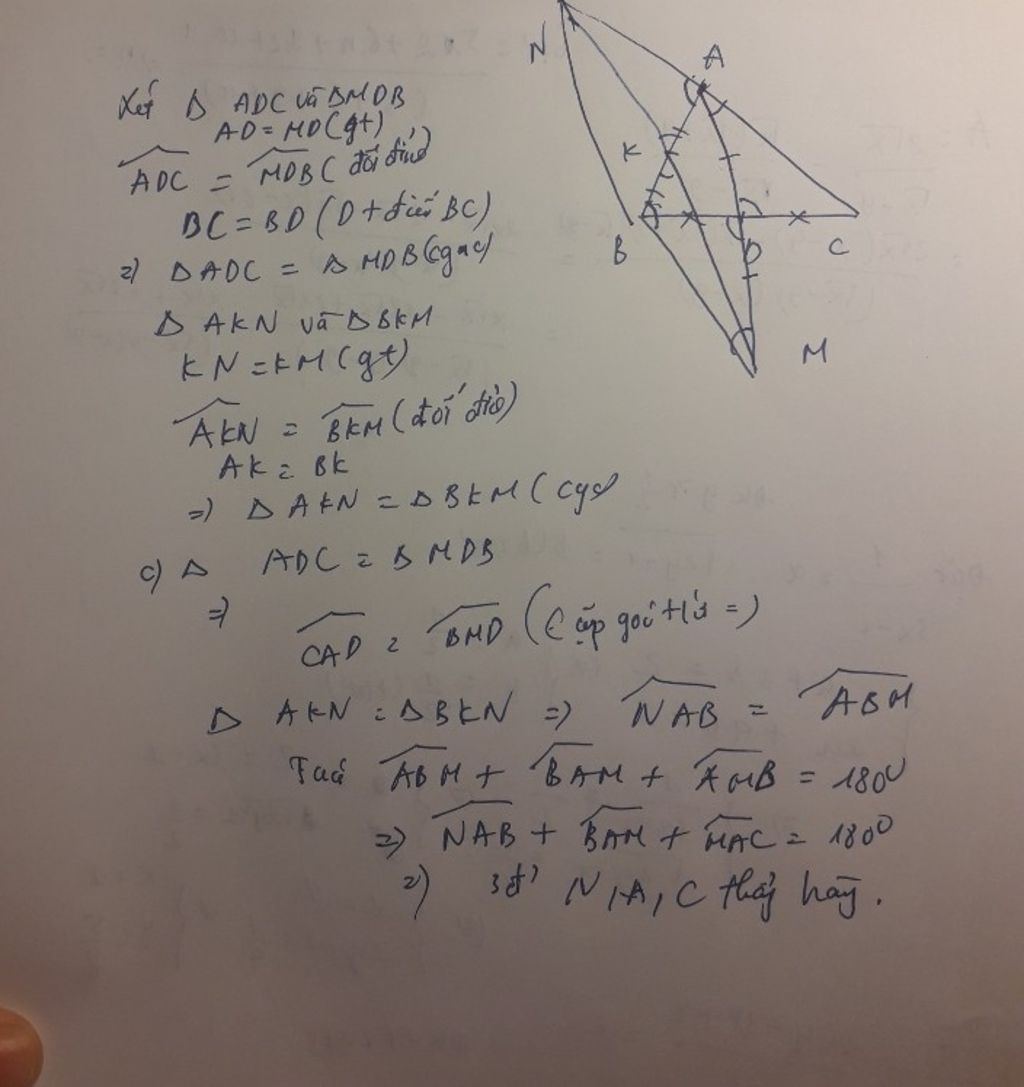 N
A
K
B
D
C
M
Xét Δ ADC và ΔMDB
AD = MD (gt)
ADC = MDB ( đối đỉnh)
DC = BD (D + điểm BC)
=) Δ ADC = Δ MDB (cgc)
Δ AKN và ΔBKM
KN = KM (gt)
AKN = BKM (đối đỉ)
AK = BK
=) Δ AKN = Δ BKM (cgc)
c) Δ ADC = Δ MDB
=)
CAD = BMD (cặp góc tứ =)
Δ AKN = ΔBKN =) NAB = ABM
ABM + BAM + AMB = 180⁰
=) NAB + BAM + MAC = 180⁰
=) 3đ' N, A, C thẳg hàg.